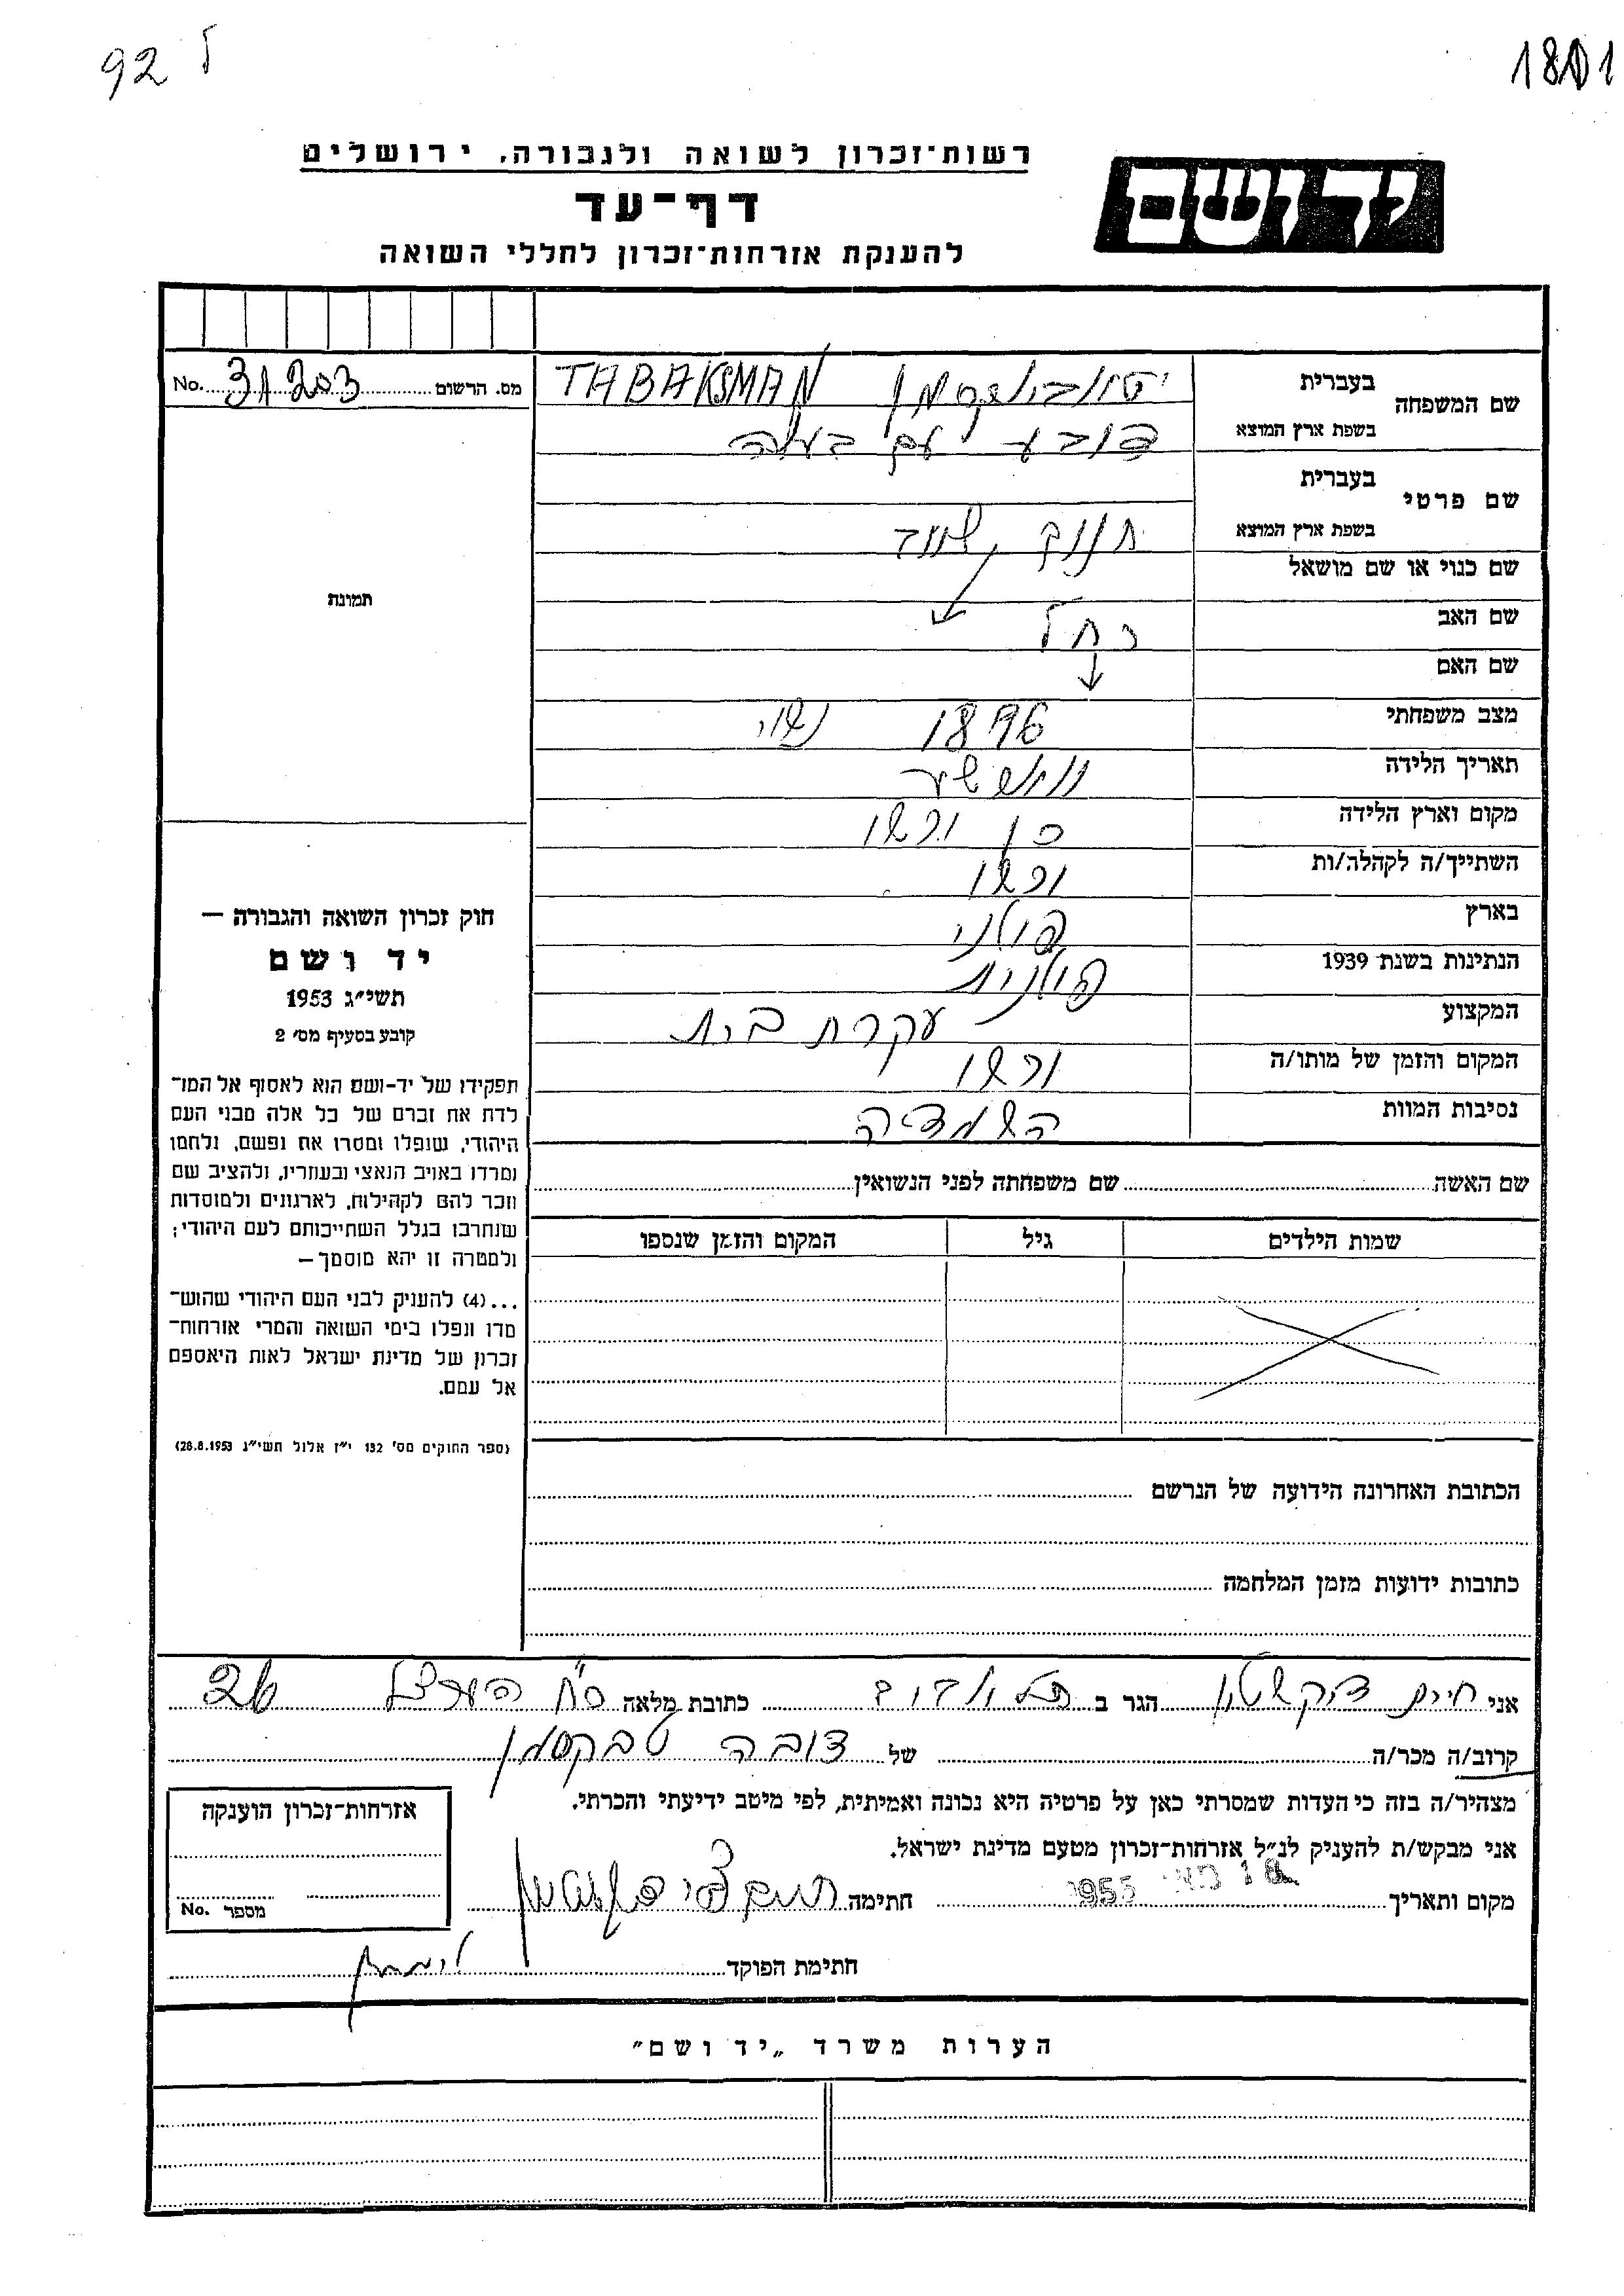 92 ל
1801
רשות־זכרון לשואה ולגבורה, ירושלים
יד ושם
דף־עד
להענקת אזרחות־זכרון לחללי השואה
מס. הרשום 31203 No.
שם המשפחה בעברית TABAKSMAN
בשפת ארץ המוצא דובע עם בעלה
שם פרטי בעברית
בשפת ארץ המוצא חנוך
שם כנוי או שם מושאל
שם האב רחל
שם האם
מצב משפחתי 1896 נשוי
תאריך הלידה
מקום וארץ הלידה ורשו
השתייך/ה לקהלה/ות ורשו
בארץ פולני
הנתינות בשנת 1939 פולנית
המקצוע עקרת בית
המקום והזמן של מותו/ה ורשו
נסיבות המוות השמדה
שם האשה שם משפחתה לפני הנשואין
שמות הילדים גיל המקום והזמן שנספו
הכתובת האחרונה הידועה של הנרשם
כתובות ידועות מזמן המלחמה
תמונה
חוק זכרון השואה והגבורה —
יד ושם
תשי״ג 1953
קובע בסעיף מס׳ 2
תפקידו של יד-ושם הוא לאסוף אל המו־
לדת את זכרם של כל אלה מבני העם
היהודי, שנפלו ומסרו את נפשם, נלחמו
ומרדו באויב הנאצי ובעוזריו, ולהציב שם
וזכר להם לקהילות, לארגונים ולמוסדות
שנחרבו בגלל השתייכותם לעם היהודי;
ולמטרה זו יהא מוסמך —
...(4) להעניק לבני העם היהודי שהוש־
מדו ונפלו בימי השואה והמרי אזרחות־
זכרון של מדינת ישראל לאות היאספם
אל עמם.
(ספר החוקים מס׳ 132 י״ז אלול תשי״ג 28.8.1953)
אני חיים הגר ב תל אביב כתובת מלאה רח הרצל 26
קרוב/ה מכר/ה של דובה טבקסמן
מצהיר/ה בזה כי העדות שמסרתי כאן על פרטיה היא נכונה ואמיתית, לפי מיטב ידיעתי והכרתי.
אני מבקש/ת להעניק לנ״ל אזרחות־זכרון מטעם מדינת ישראל.
מקום ותאריך 1955 חתימה
חתימת הפוקד
אזרחות־זכרון הוענקה
מספר No.
הערות משרד „יד ושם״